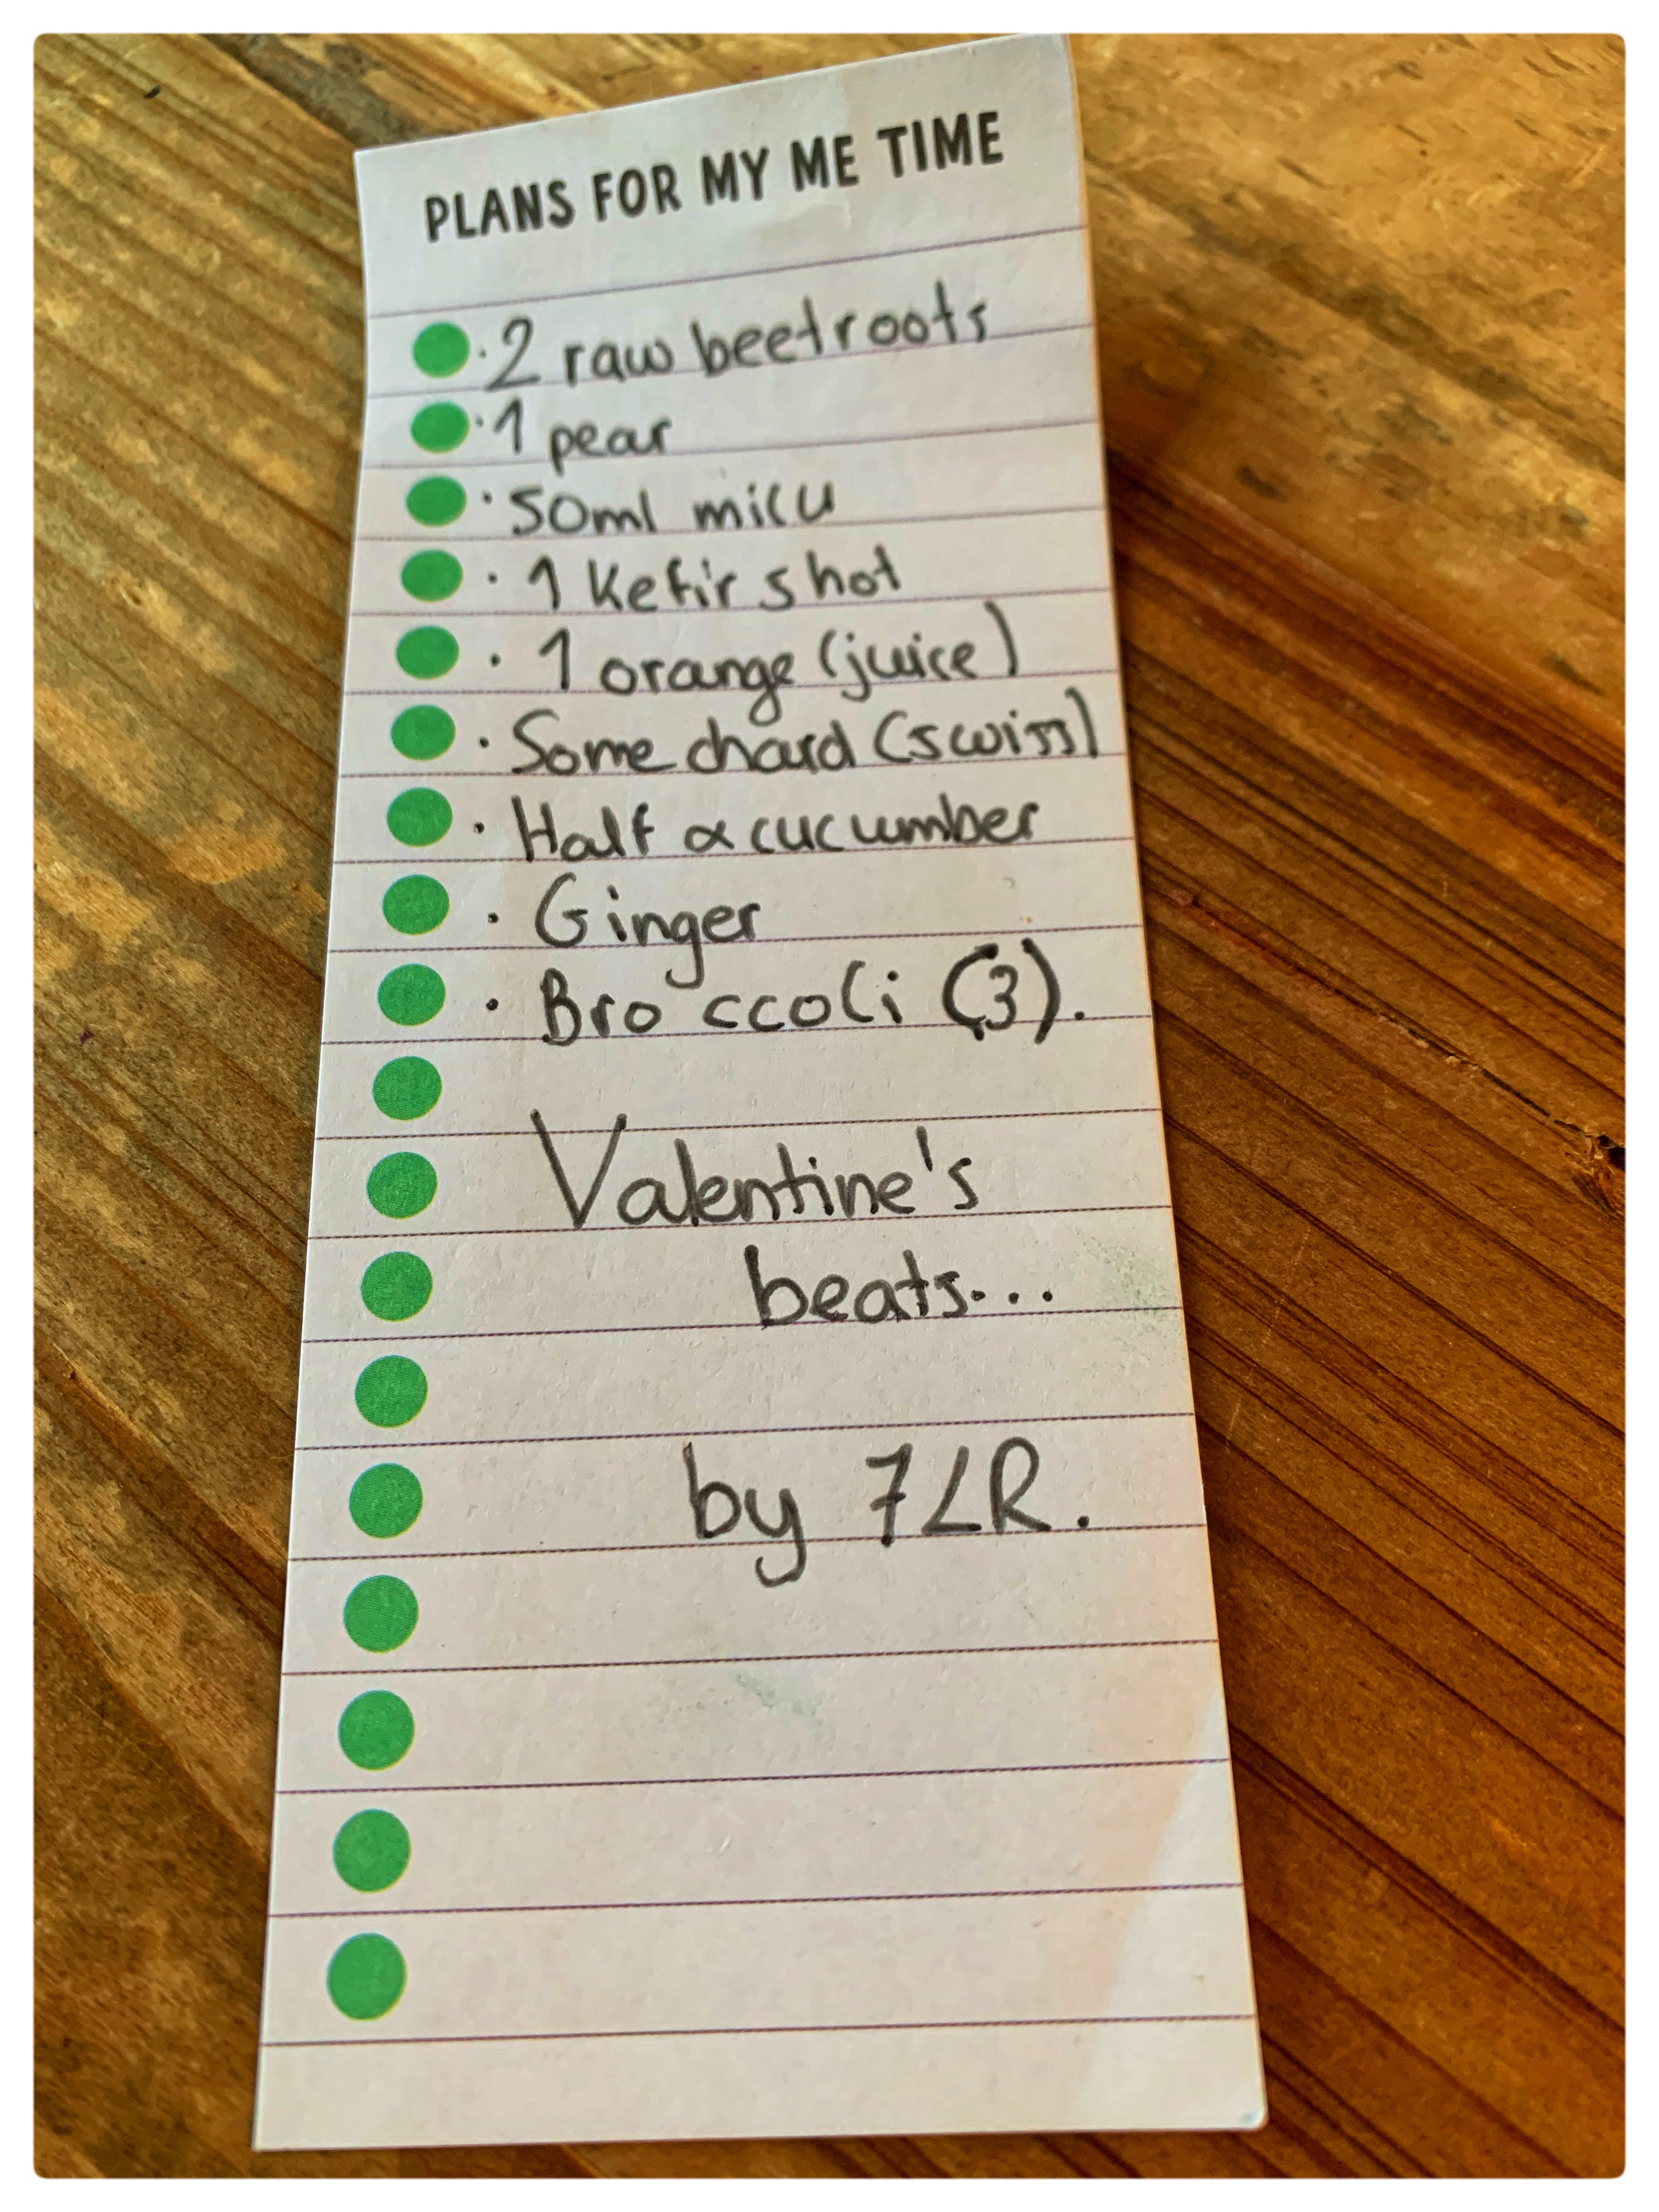 PLANS FOR MY ME TIME
· 2 raw beetroots
· 1 pear
· 50ml milk
· 1 Kefir shot
· 1 orange (juice)
· Some chard (swiss)
· Half a cucumber
· Ginger
· Broccoli (3).
Valentine's
beats...
by 7LR.